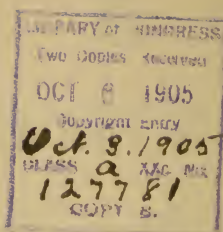 LIBRARY of CONGRESS
Two Copies Received
OCT 6 1905
Copyright Entry
Oct. 3. 1905
CLASS a XXc. No.
127781
COPY B.